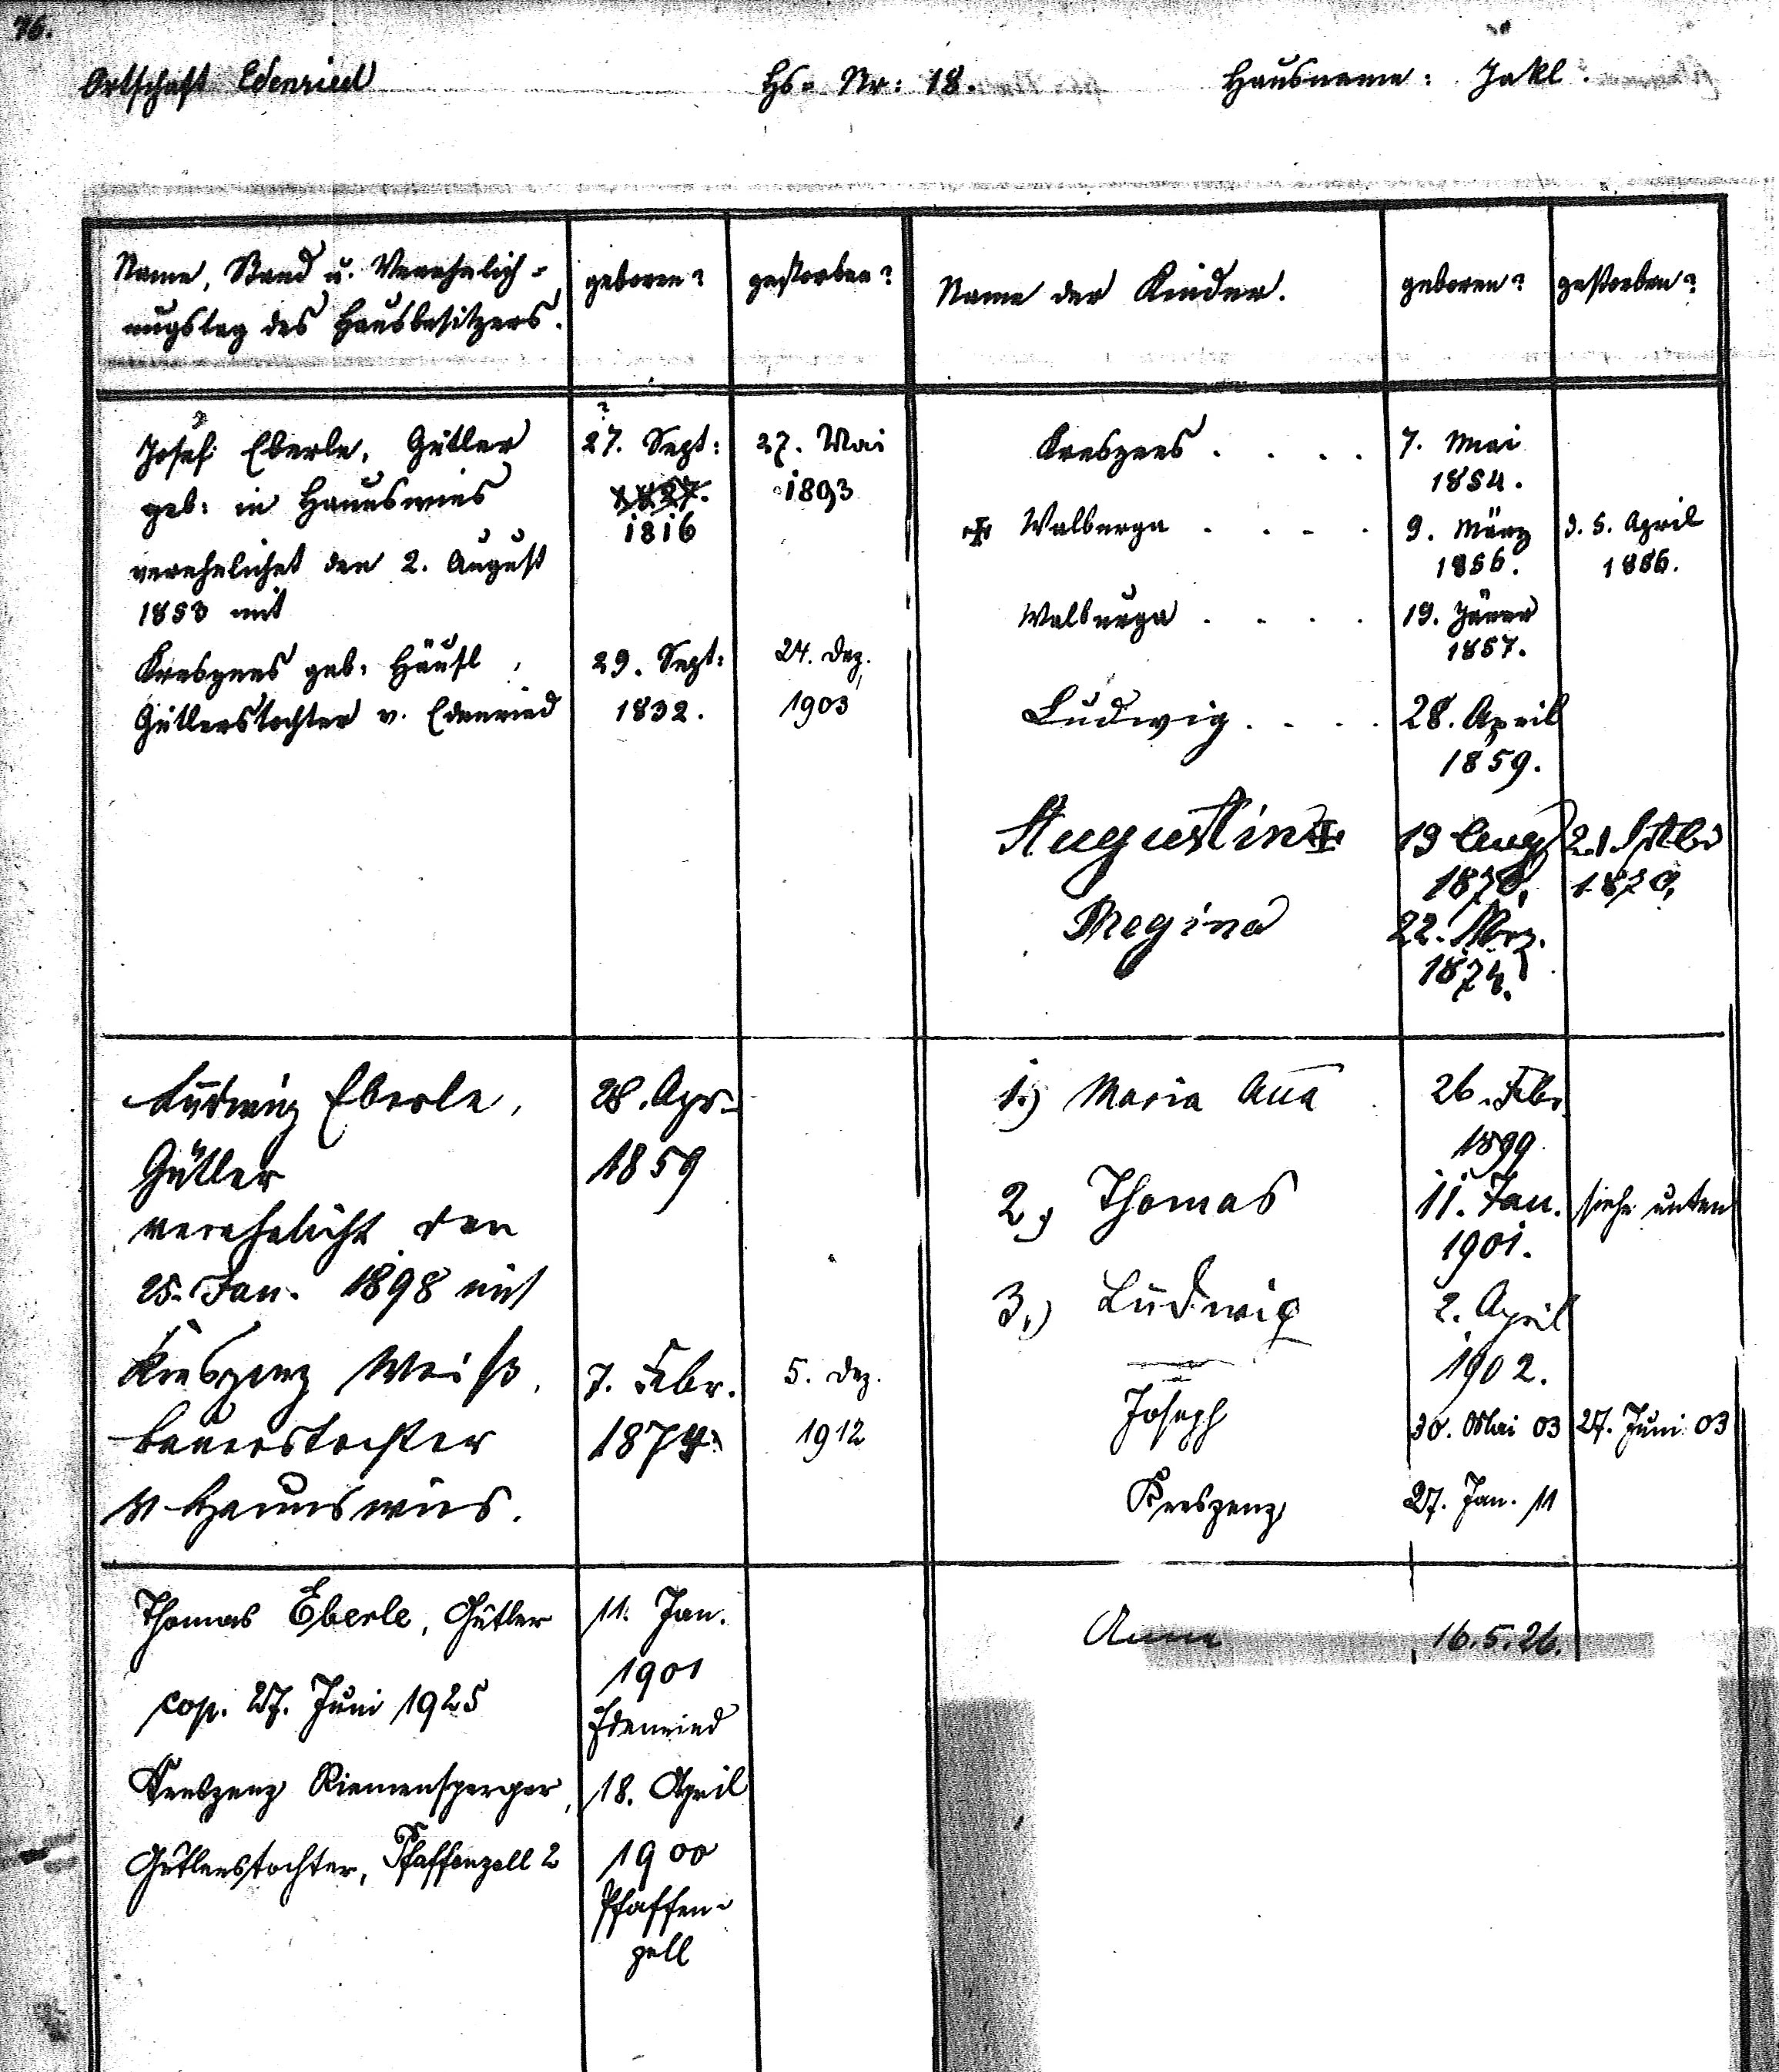 76.
Ortschaft Edenried Hs. Nr: 18. Hausname: Jakl.
Name, Stand u. Verehelich-
ungstag des Hausbesitzers.
geboren?
gestorben?
Name der Kinder.
geboren?
gestorben?
Josef Eberle, Gütler
geb: in Haunswies
verehelichet den 2. August
1853 mit
Kreszens geb: Häusl,
Gütlerstochter v. Edenried
?
27. Sept:
1816
29. Sept:
1832.
27. Mai
1893
24. Dez.
1903
Kreszens . . . . 7. Mai
1854.
Walburga . . . . 9. März d. 5. April
1856. 1886.
Walburga . . . . 19. Jäner
1857.
Ludwig . . . . 28. April
1859.
Augustin 19 Aug 21. Sptbr
1870. 1870.
Regina 22.
1874.
Ludwig Eberle,
Gütler
verehelicht den
25. Jan. 1898 mit
Kreszenz Weiß,
Bauerstochter
v Haunswies.
28. Apr.
1859
7. Febr.
1874.
5. Dez.
1912
1.) Maria Anna 26. Febr.
1899
2.) Thomas 11. Jan. siehe unten
1901.
3.) Ludwig 2. April
1902.
Joseph 30. Mai 03 27. Juni 03
Kreszenz 27. Jan. 11
Thomas Eberle, Gütler
cop. 27. Juni 1925
Kreszenz Riemensperger,
Gütlerstochter, Pfaffenzell 2
11. Jan.
1901
Edenried
18. April
1900
Pfaffen-
zell
Anna 16.5.26.